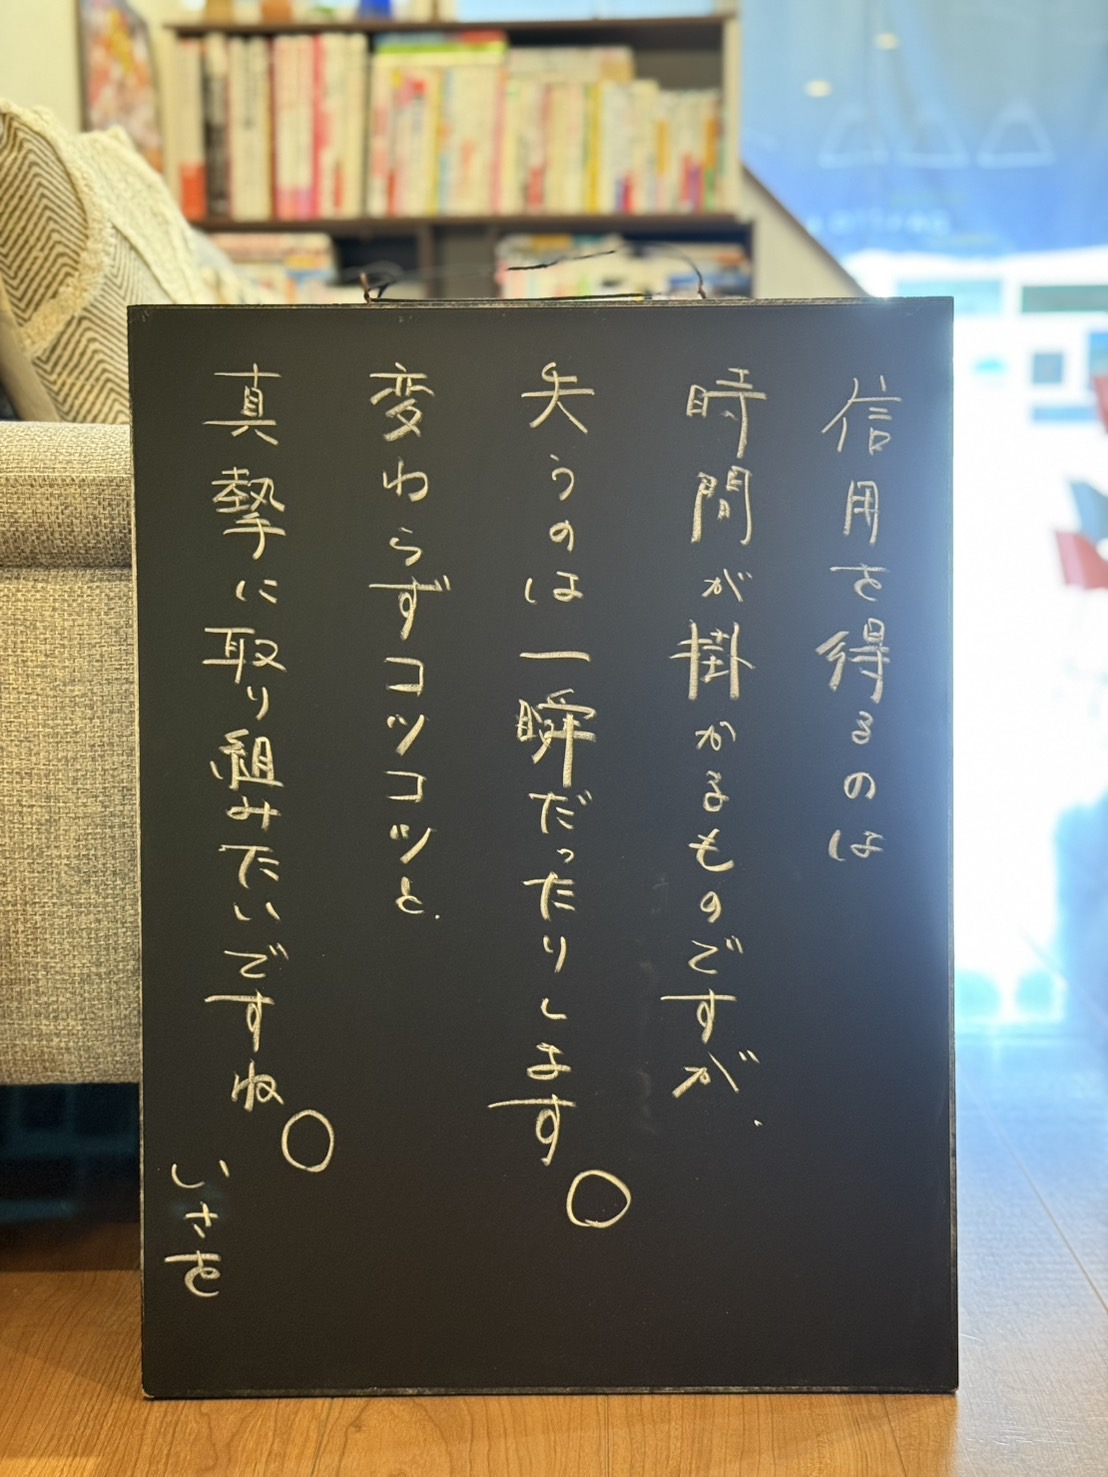 信用を得るのは
時間が掛かるものですが、
失うのは一瞬だったりします。
変わらずコツコツと、
真摯に取り組みたいですね。
いさを